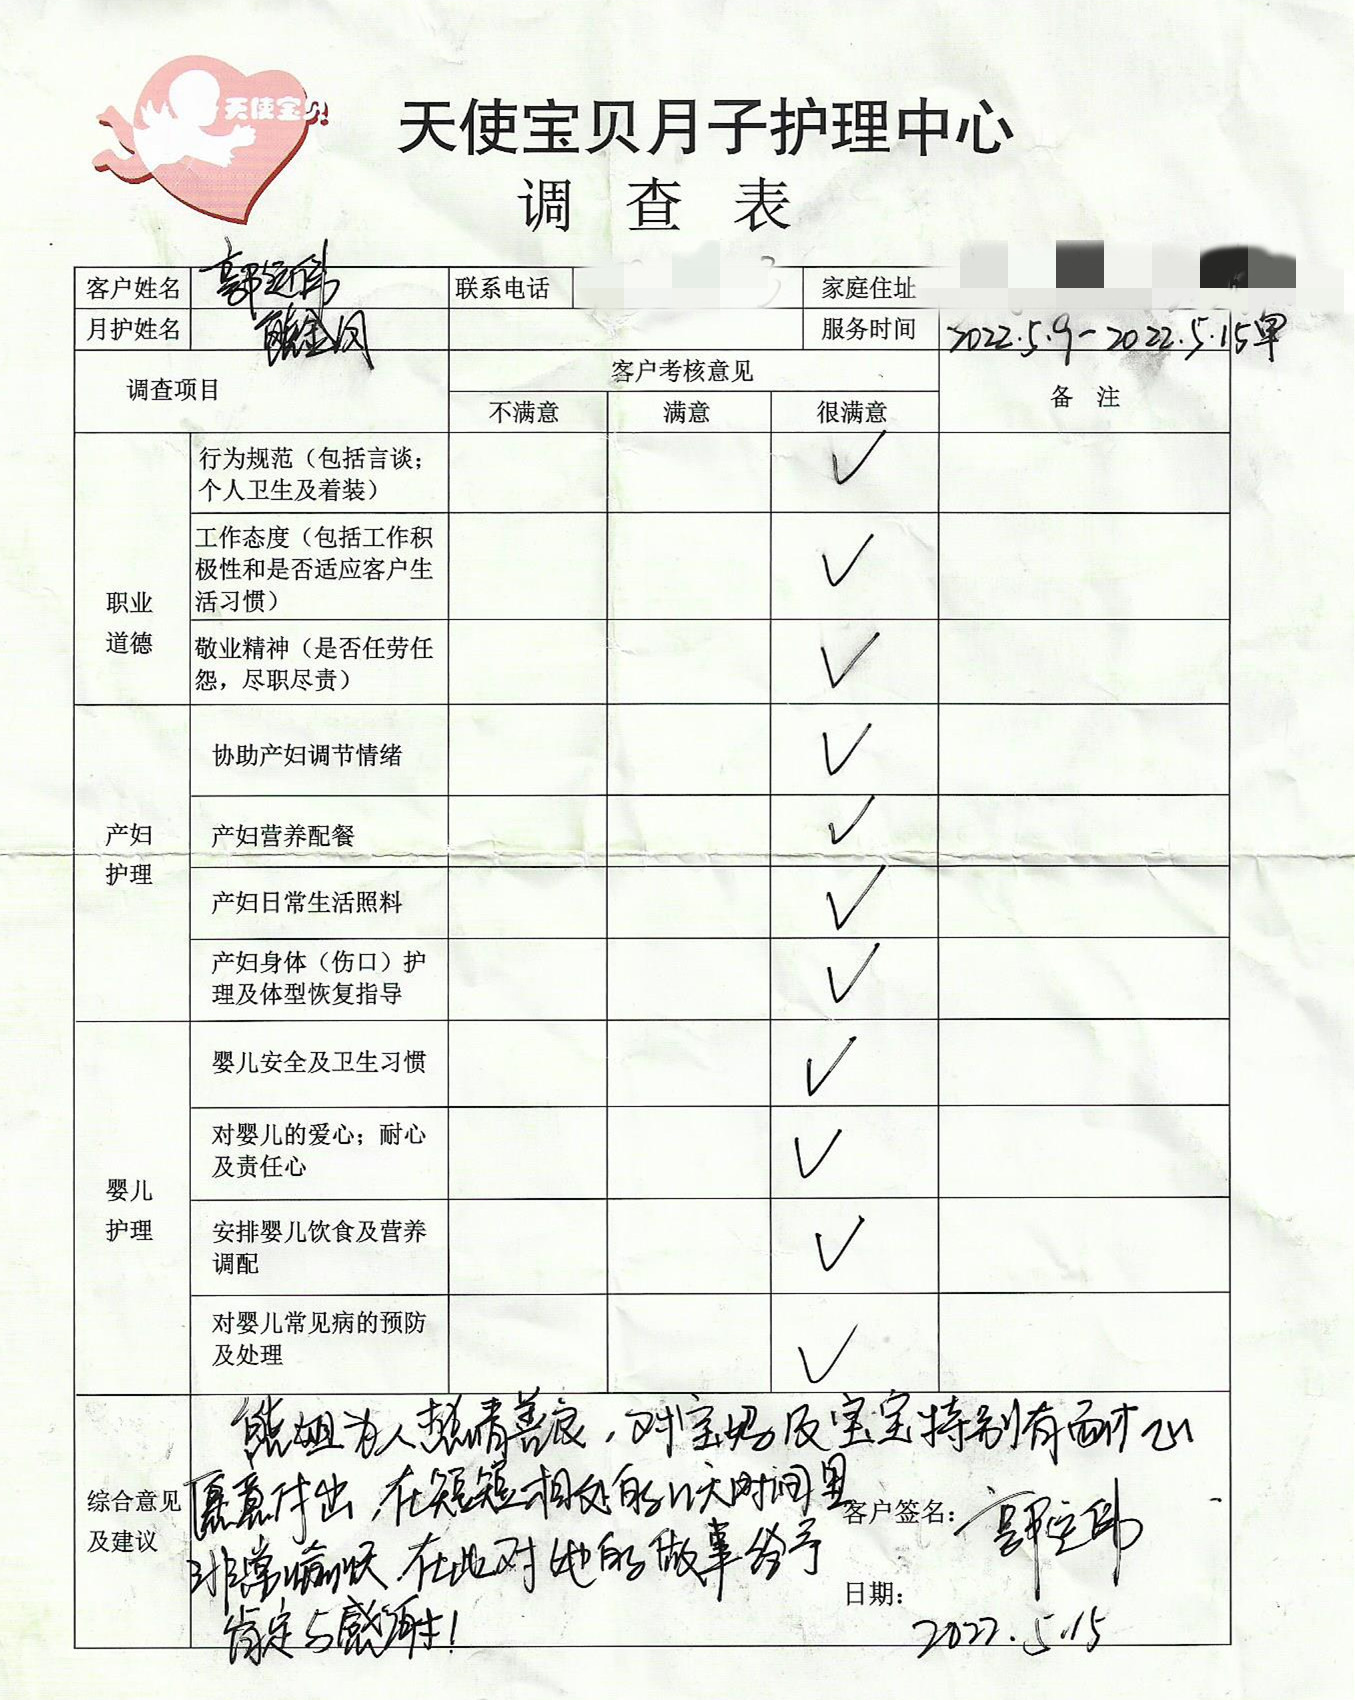 天使宝贝
天使宝贝月子护理中心
调查表
客户姓名 郭定伟 联系电话 家庭住址
月护姓名 熊金凤 服务时间 2022.5.9-2022.5.15早
调查项目 客户考核意见 备注
不满意 满意 很满意
职业
道德
行为规范（包括言谈；
个人卫生及着装）
工作态度（包括工作积
极性和是否适应客户生
活习惯）
敬业精神（是否任劳任
怨，尽职尽责）
产妇
护理
协助产妇调节情绪
产妇营养配餐
产妇日常生活照料
产妇身体（伤口）护
理及体型恢复指导
婴儿
护理
婴儿安全及卫生习惯
对婴儿的爱心；耐心
及责任心
安排婴儿饮食及营养
调配
对婴儿常见病的预防
及处理
综合意见
及建议
熊姐为人热情善良，对宝妈及宝宝特别有耐心
愿意付出，在短短相处的几天时间里
非常愉快，在此对她的做事给予
肯定与感谢！
客户签名：郭定伟
日期：
2022.5.15